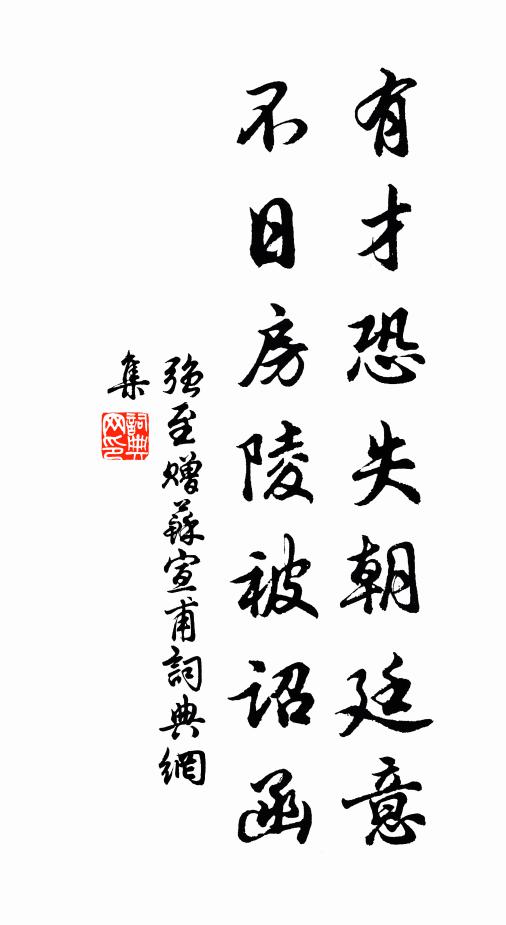 有才恐失朝廷意
不日房陵被詔函
強至贈蘇宣甫詞典網
集
詞典
网印